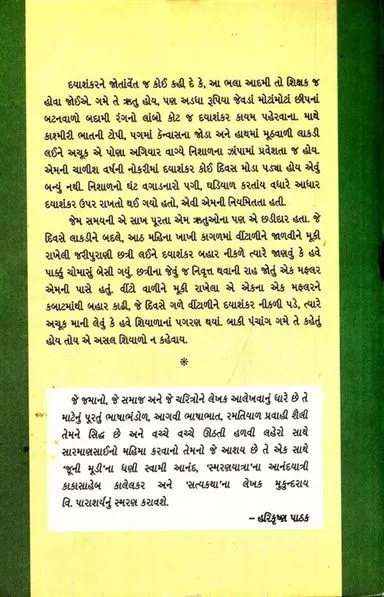 દયાશંકરને જોતાંવેંત જ કોઈ કહી દે કે, આ ભલા આદમી તો શિક્ષક જ
હોવા જોઈએ. ગમે તે ઋતુ હોય, પણ અડધા રૂપિયા જેવડાં મોટાંમોટાં છીપનાં
બટનવાળો બદામી રંગનો લાંબો કોટ જ દયાશંકર કાયમ પહેરવાના. માથે
કાશ્મીરી ભાતની ટોપી, પગમાં કૅન્વાસના જોડા અને હાથમાં મૂઠવાળી લાકડી
લઈને અચૂક એ પોણા અગિયાર વાગ્યે નિશાળના ઝાંપામાં પ્રવેશતા જ હોય.
એમની ચાળીશ વર્ષની નોકરીમાં દયાશંકર કોઈ દિવસ મોડા પડ્યા હોય એવું
બન્યું નથી. નિશાળનો ઘંટ વગાડનારો પગી, ઘડિયાળ કરતાંય વધારે આધાર
દયાશંકર ઉપર રાખતો થઈ ગયો હતો, એવી એમની નિયમિતતા હતી.
જેમ સમયની એ સાખ પૂરતા એમ ઋતુઓના પણ એ છડીદાર હતા. જે
દિવસે લાકડીને બદલે, આઠ મહિના ખાખી કાગળમાં વીંટાળીને જાળવીને મૂકી
રાખેલી જરીપુરાણી છત્રી લઈને દયાશંકર બહાર નીકળે ત્યારે જાણવું કે હવે
પાક્કું ચોમાસું બેસી ગયું. છત્રીના જેવું જ નિવૃત્ત થવાની રાહ જોતું એક મફલર
એમની પાસે હતું. વીંટો વાળીને મૂકી રાખેલા એ એકના એક મફલરને
કબાટમાંથી બહાર કાઢી, જે દિવસે ગળે વીંટાળીને દયાશંકર નીકળી પડે, ત્યારે
અચૂક માની લેવું કે હવે શિયાળાનાં પગરણ થયાં. બાકી પંચાંગ ગમે તે કહેતું
હોય તોય એ અસલ શિયાળો ન કહેવાય.
*
જે જમાનો, જે સમાજ અને જે ચરિત્રોને લેખક આલેખવાનું ધારે છે તે
માટેનું પૂરતું ભાષાભંડોળ, આગવી ભાષાભાત, રમતિયાળ પ્રવાહી શૈલી
તેમને સિદ્ધ છે અને વચ્ચે વચ્ચે ઊઠતી હળવી લહેરો સાથે
સારમાણસાઈનો મહિમા કરવાનો તેમનો જે આશય છે તે એક સાથે
'જૂની મૂડી'ના ધણી સ્વામી આનંદ, 'સ્મરણયાત્રા'ના આનંદયાત્રી
કાકાસાહેબ કાલેલકર અને 'સત્યકથા'ના લેખક મુકુન્દરાય
વિ. પારાશર્યનું સ્મરણ કરાવશે.
– હરિકૃષ્ણ પાઠક